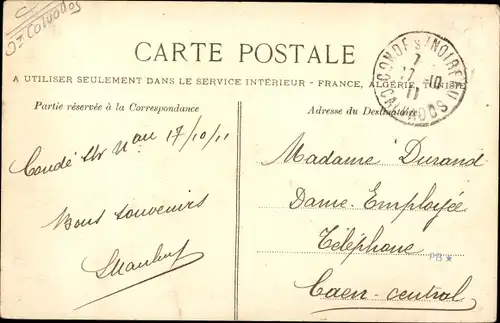 Dt Calvados
CARTE POSTALE
A UTILISER SEULEMENT DANS LE SERVICE INTÉRIEUR - FRANCE, ALGÉRIE, TUNISIE
Partie réservée à la Correspondance
Adresse du Destinataire
CONDE S/NOIREAU
7
17 -10
11
CALVADOS
Condé sur 17/10/11
Bons souvenirs
Madame Durand
Dame-Employée
Téléphone
Caen-central
PB.★